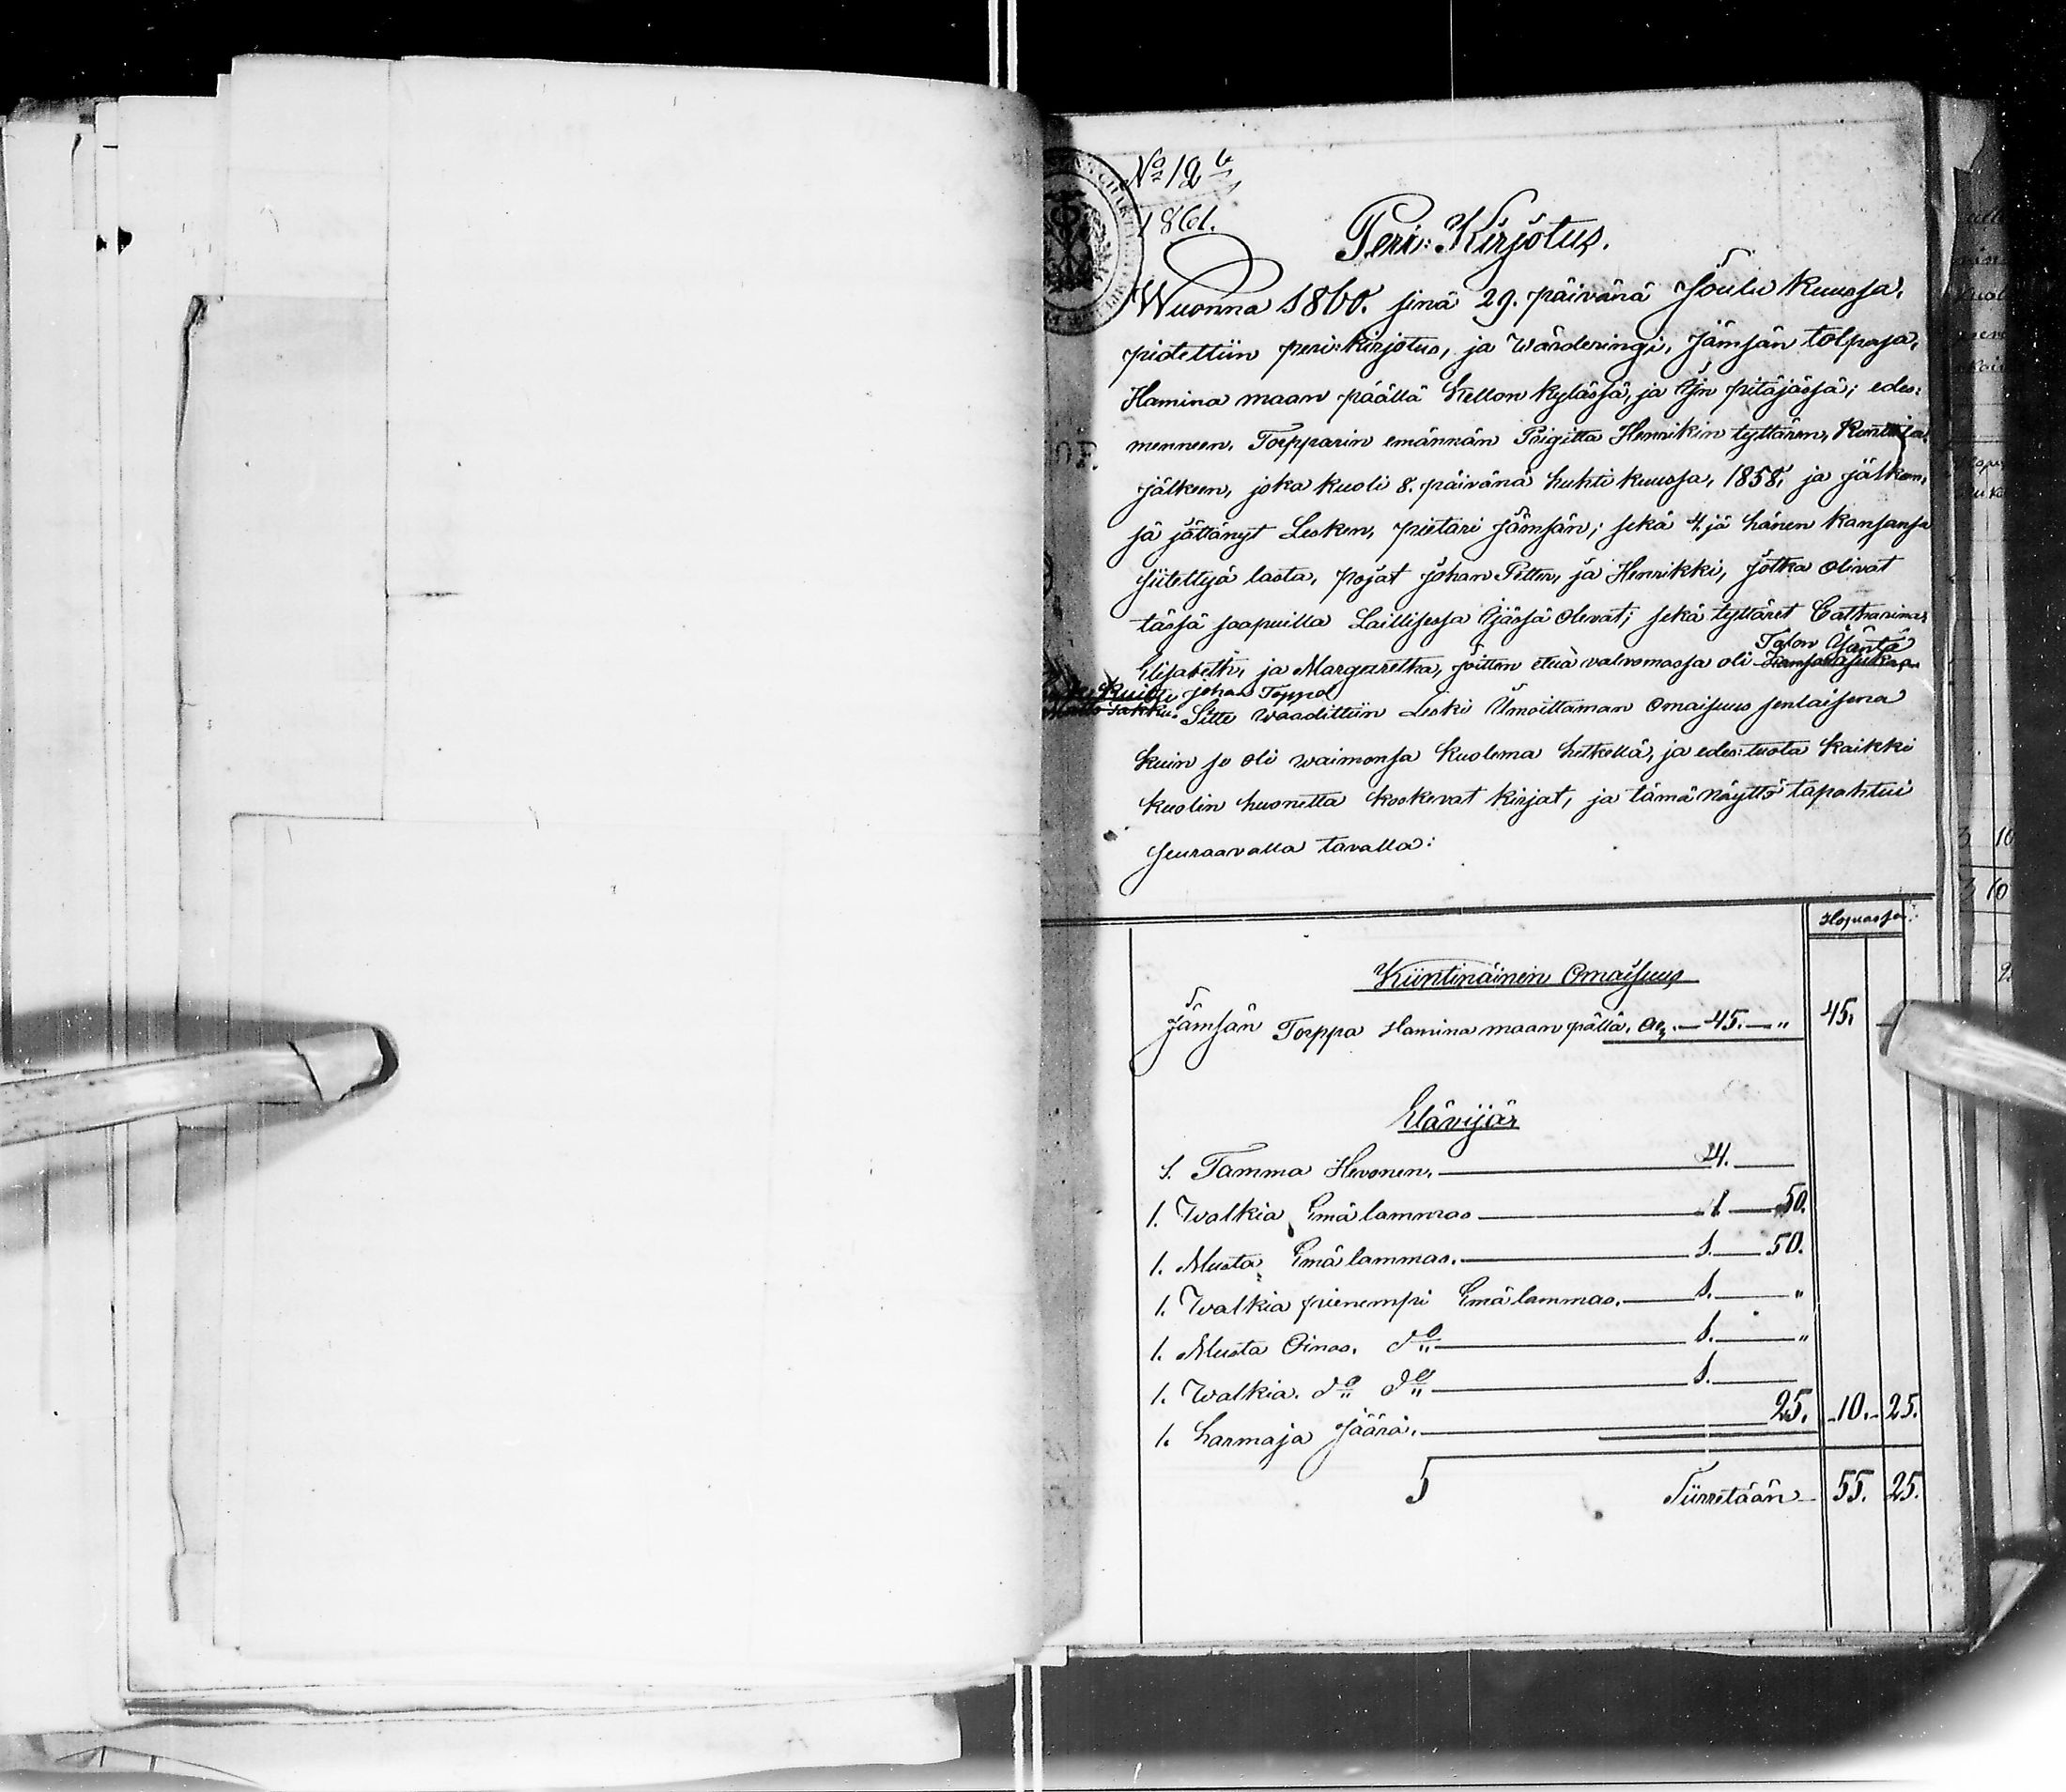 No 12
1861.
Peri: Kirjotus.
Wuonna 1860. sinä 29. päivänä Joulu kuussa,
pidettiin peri:kirjotus, ja wärderingi, Jämsän tolpasa,
Hamina maan päällä Kellon kylässä, ja Ijn pitäjässä; edes:
menneen, Torpparin emännän Prigitta Henrikin tyttären,
jälkeen, joka kuoli 8. päivänä huhti kuussa, 1858, ja jälkeen,
sä jättänyt Lesken, pietari Jämsän; sekä 4 jä hänen kansansa
siitettyä lasta, pojat Johan Petter, ja Henrikki, jotka olivat
tässä saapuilla Laillisessa Ijässä olevat; sekä tyttäret Catharina,
Talon Isäntä
Elisabeth, ja Margaretha, joitten etua valvomassa oli
Johan Toppol
Sitte waadittiin Leski Umoittaman omaisuus senlaisena
kuin se oli waimonsa kuolema hetkellä, ja edes:tuota kaikki
kuolin huonetta koskevat kirjat, ja tämä näyttö tapahtui
seuraavalla tavalla:
Hopiassa:
Kiintinäinen Omaisuus
Jämsän Torppa Hamina maan pällä. Ar. — 45. — " 45. —
Elävijär
1. Tamma Hevonen. — 4. —
1. Walkia Emä lammas — 1 — 50.
1. Musta Emä lammas. — 1. — 50.
1. Walkia pienempi Emä lammas. — 1. — "
1. Musta Oinas. do — 1. — "
1. Walkia. do do — 1. —
1. harmaja Jäärä. — 25. 10. 25.
Siirretään — 55. 25.